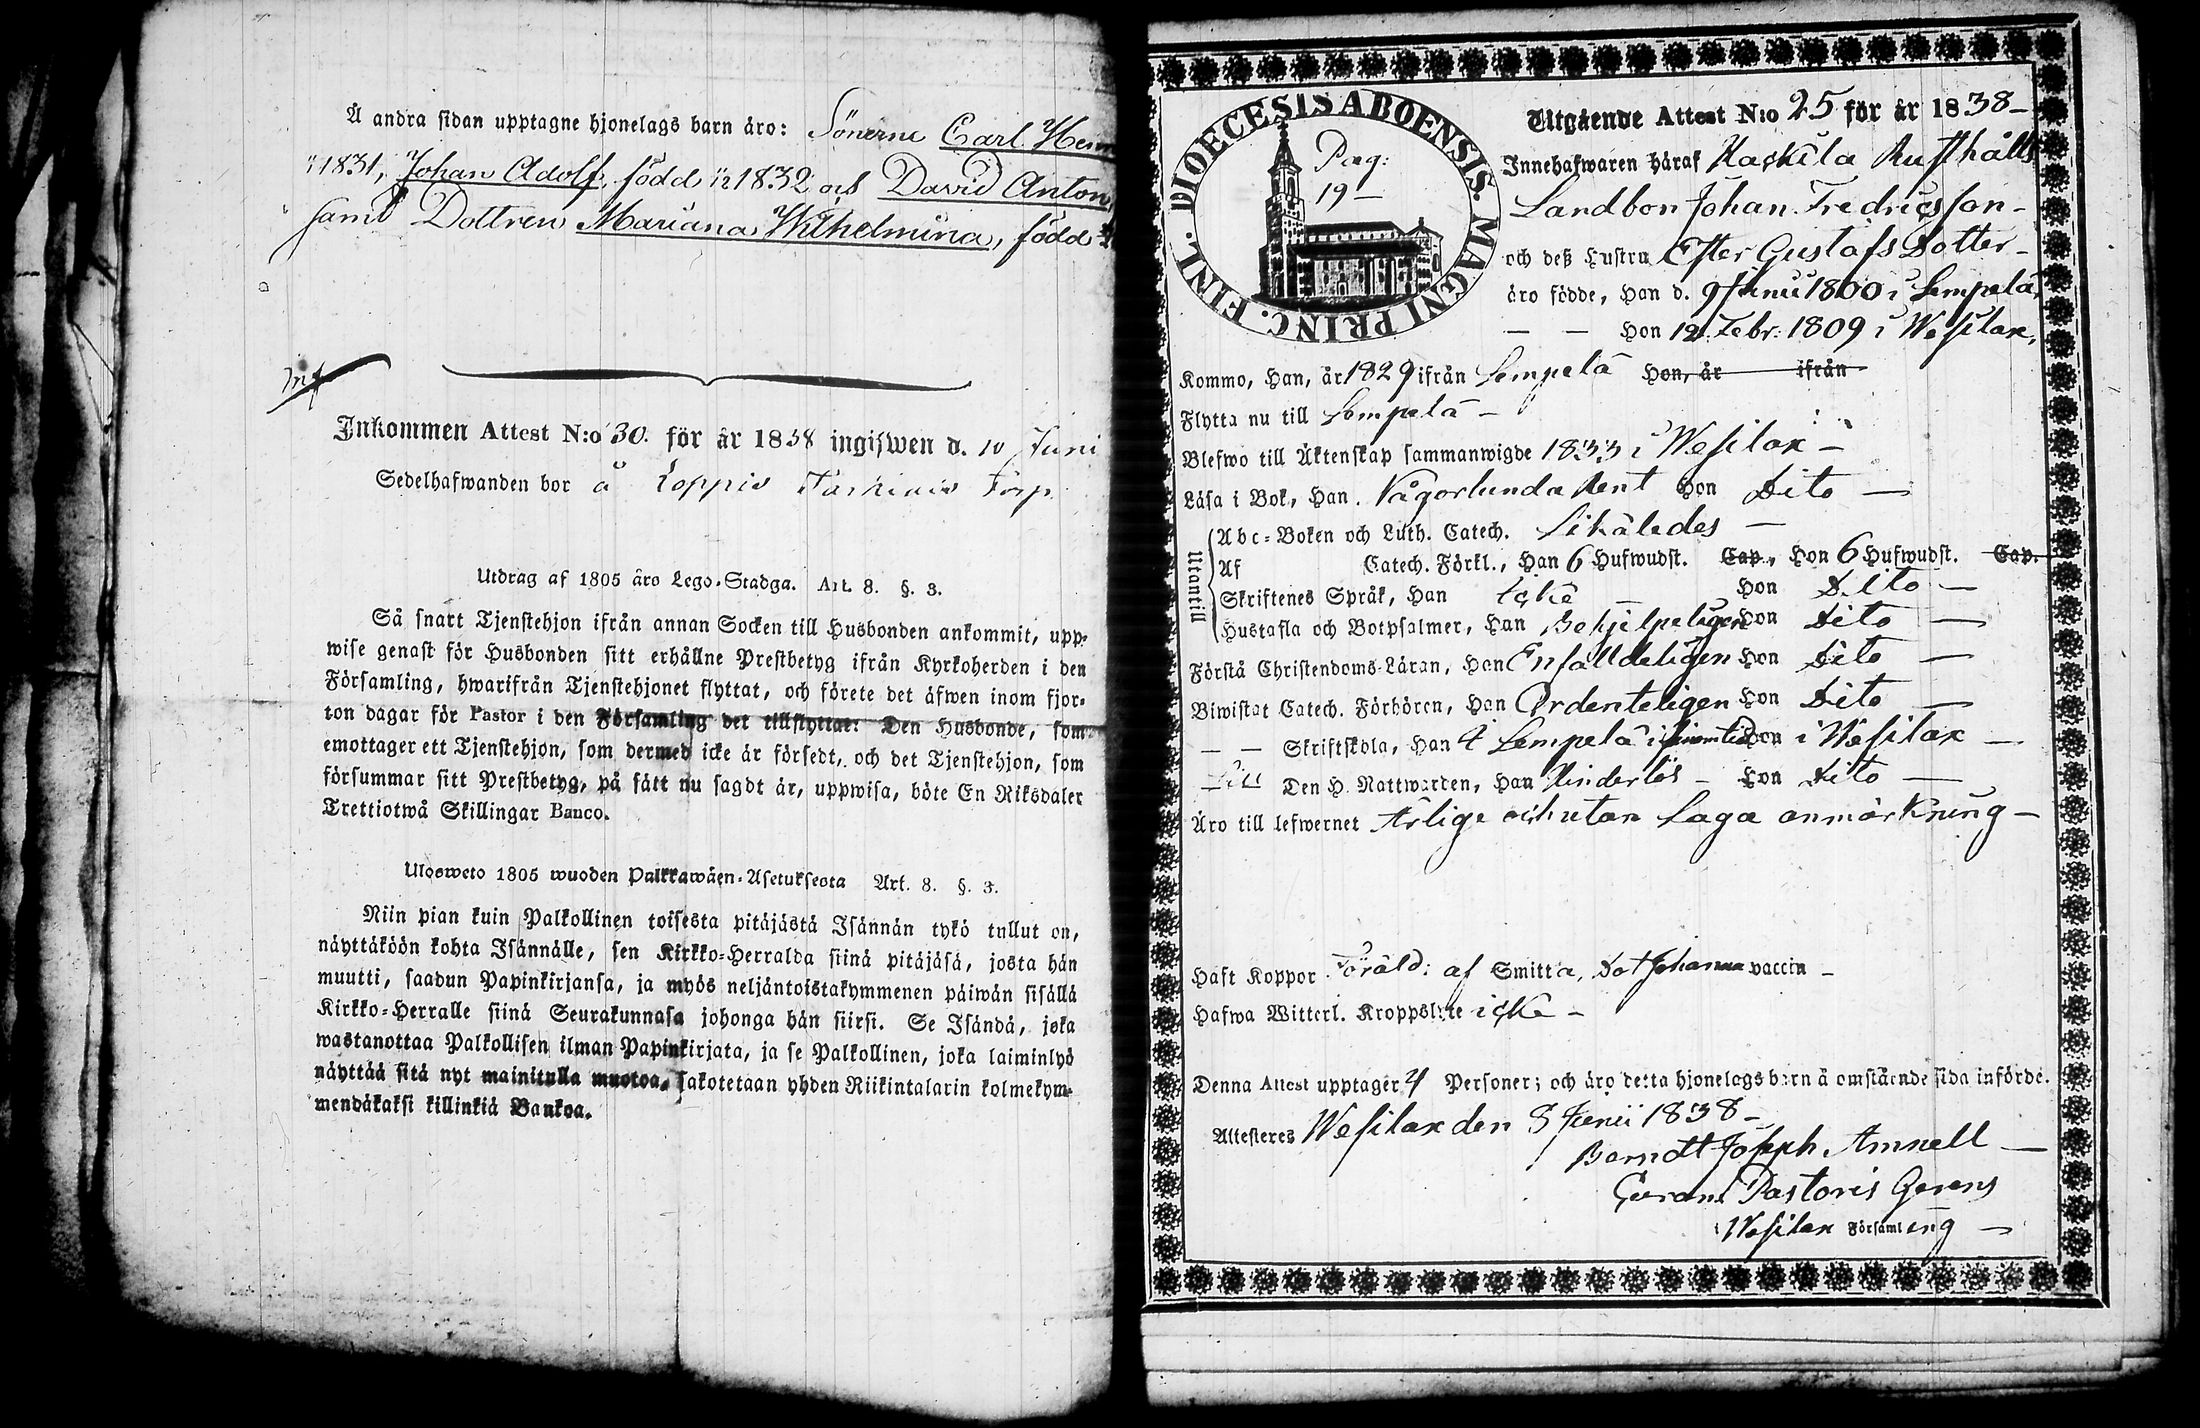 Å andra sidan upptagne hjonelags barn äro: Sönerne Carl Hein
1831, Johan Adolf, född 1832 och David Anton
samt Dottren Mariana Wilhelmina, född
Inkommen Attest N:o 30. för år 1838 ingifwen d. 10 Juni
Sedelhafwanden bor å Loppis Torp
Utdrag af 1805 års Lego-Stadga. Art. 8. §. 3.
Så snart Tjenstehjon ifrån annan Socken till Husbonden ankommit, upp-
wise genast för Husbonden sitt erhållne Prestbetyg ifrån Kyrkoherden i den
Församling, hwarifrån Tjenstehjonet flyttat, och förete det äfwen inom fjor-
ton dagar för Pastor i den Församling det tillflyttat: Den Husbonde, som
emottager ett Tjenstehjon, som dermed icke är försedt, och det Tjenstehjon, som
försummar sitt Prestbetyg, på sätt nu sagdt är, uppwisa, böte En Riksdaler
Trettiotwå Skillingar Banco.
Ulosweto 1805 wuoden Palkkawäen-Asetuksesta Art. 8. §. 3.
Niin pian kuin Palkollinen toisesta pitäjästä Isännän tykö tullut on,
näyttäköön kohta Isännälle, sen Kirkko-Herralda siinä pitäjäsä, josta hän
muutti, saadun Papinkirjansa, ja myös neljäntoistakymmenen päiwän sisällä
Kirkko-Herralle siinä Seurakunnasa johonga hän siirsi. Se Isändä, joka
wastanottaa Palkollisen ilman Papinkirjata, ja se Palkollinen, joka laiminlyö
näyttää sitä nyt mainitulla muotoa, sakotetaan yhden Riikintalarin kolmekym-
mendäkaksi killinkiä Bankoa.
DIOECESIS ABOENSIS. MAGNI PRINC. FINL.
Pag:
19 –
Utgående Attest N:o 25 för år 1838 –
Innehafwaren häraf Kaskila Rusthålls
Landbon Johan Fredricsson –
och deß Hustru Ester Gustafs Dotter –
äro födde, Han d. 9 Junii 1800 i Lempela,
– – Hon 12 Febr: 1809 i Wesilax,
Kommo, Han, år 1829 ifrån Lempela Hon, år ifrån
Flytta nu till Lempela –
Blefwo till Äktenskap sammanwigde 1833 i Wesilax –
Läsa i Bok, Han Någorlunda Rent Hon Dito –
Utantill
Abc-Boken och Luth. Catech. Likaledes –
Af Catech. Förkl., Han 6 Hufwudst. Cap., Hon 6 Hufwudst. Cap.
Skriftenes Språk, Han icke – Hon Dito –
Hustafla och Botpsalmer, Han Behjelpeligen Hon Dito –
Förstå Christendoms-Läran, Han Enfalldeligen Hon Dito –
Biwistat Catech. Förhören, Han Ordenteligen Hon Dito –
– – Skriftskola, Han i Lempela Hon i Wesilax –
Den H. Nattwarden, Han Hinderlös – Hon Dito –
Äro till lefwernet Ärlige och utan Laga anmärkning –
Haft Koppor Föräld: af Smitta, Dot Johanna vaccin –
Hafwa Witterl. Kroppslyte icke –
Denna Attest upptager 4 Personer; och äro detta hjonelags barn å omstående sida införde.
Attesteres Wesilax den 8 Junii 1838 –
Berndt Joseph Amnell –
Curam Pastoris Gerens
i Wesilax Församling –